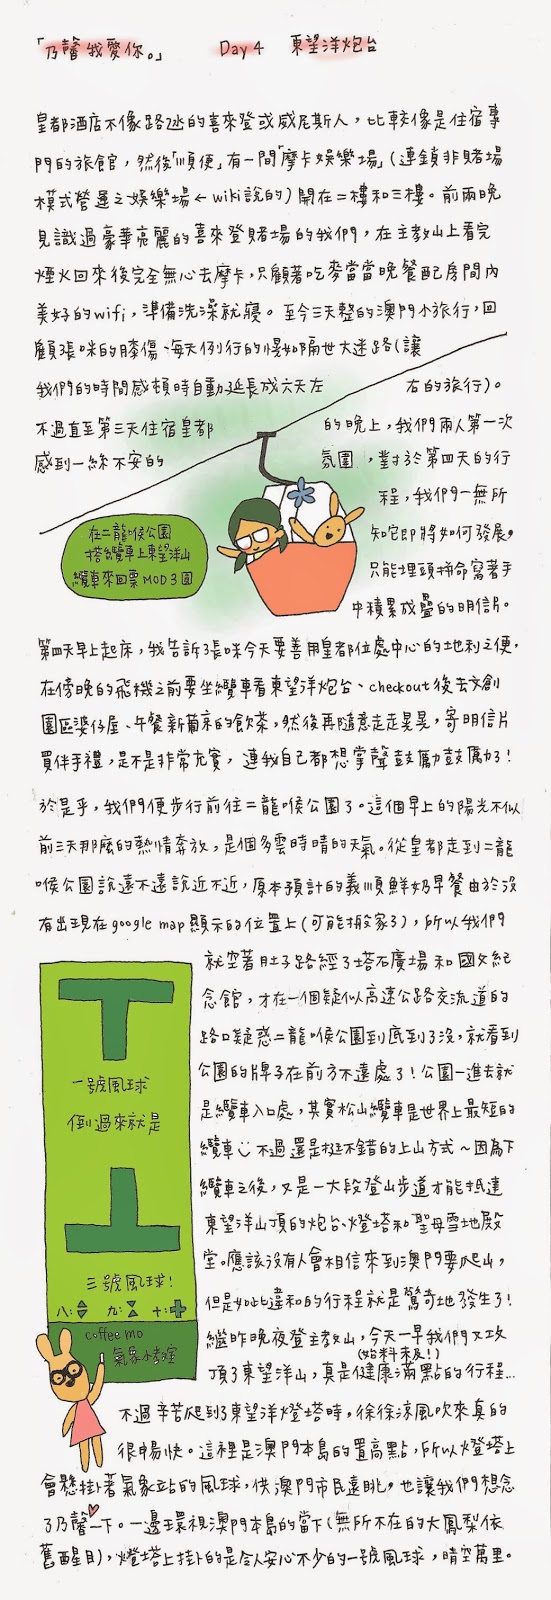 「乃馨我愛你。」 Day 4 東望洋炮台
皇都酒店不像路氹的喜來登或威尼斯人，比較像是住宿專
門的旅館，然後「順便」有一間「摩卡娛樂場」(連鎖非賭場
模式營運之娛樂場←wiki說的)開在二樓和三樓。前兩晚
見識過豪華亮麗的喜來登賭場的我們，在主教山上看完
煙火回來後完全無心去摩卡，只顧著吃麥當當晚餐配房間內
美好的wifi，準備洗澡就寢。至今三天整的澳門小旅行，回
顧張咪的膝傷、每天例行的恍如隔世大迷路(讓
我們的時間感頓時自動延長成六天左右的旅行)。
不過直至第三天住宿皇都的晚上，我們兩人第一次
感到一絲不安的氛圍，對於第四天的行
程，我們一無所
知它即將如何發展。
只能埋頭拼命寫著手
中積累成疊的明信片。
在二龍喉公園
搭纜車上東望洋山
纜車來回票MOP3圓
第四天早上起床，我告訴張咪今天要善用皇都位處中心的地利之便，
在傍晚的飛機之前要坐纜車看東望洋炮台、checkout後去文創
園區婆仔屋、午餐新葡京的飲茶，然後再隨意走走晃晃，寄明信片
買伴手禮，是不是非常充實，連我自己都想掌聲鼓勵鼓勵了！
於是乎，我們便步行前往二龍喉公園了。這個早上的陽光不似
前三天那麼的熱情奔放，是個多雲時晴的天氣。從皇都走到二龍
喉公園說遠不遠說近不近，原本預計的義順鮮奶早餐由於沒
有出現在google map顯示的位置上(可能搬家了)，所以我們
就空著肚子路經了塔石廣場和國父紀
念館，才在一個疑似高速公路交流道的
路口疑惑二龍喉公園到底到了沒，就看到
公園的牌子在前方不遠處了！公園一進去就
是纜車入口處，其實松山纜車是世界上最短的
纜車 不過還是挺不錯的上山方式~因為下
纜車之後，又是一大段登山步道才能抵達
東望洋山頂的炮台、燈塔和聖母雪地殿
堂。應該沒有人會相信來到澳門要爬山，
但是如此違和的行程就是驚奇地發生了！
繼昨晚夜登主教山，今天一早我們又攻
(始料未及！)
頂了東望洋山，真是健康滿點的行程...
一號風球
倒過來就是
三號風球！
八: 九: 十:
coffee mo
氣象小教室
不過辛苦爬到了東望洋燈塔時，徐徐涼風吹來真的
很暢快。這裡是澳門本島的置高點，所以燈塔上
會懸掛著氣象站的風球，供澳門市民遠眺，也讓我們想念
了乃馨一下。一邊環視澳門本島的當下(無所不在的大鳳梨依
舊醒目)，燈塔上掛的是令人安心不少的一號風球，晴空萬里。